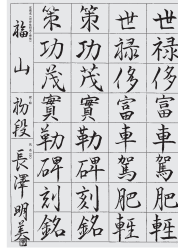 世禄侈富車駕肥軽
世禄侈富車駕肥軽
策功茂實勒碑刻銘
策功茂實勒碑刻銘
福山
長澤明